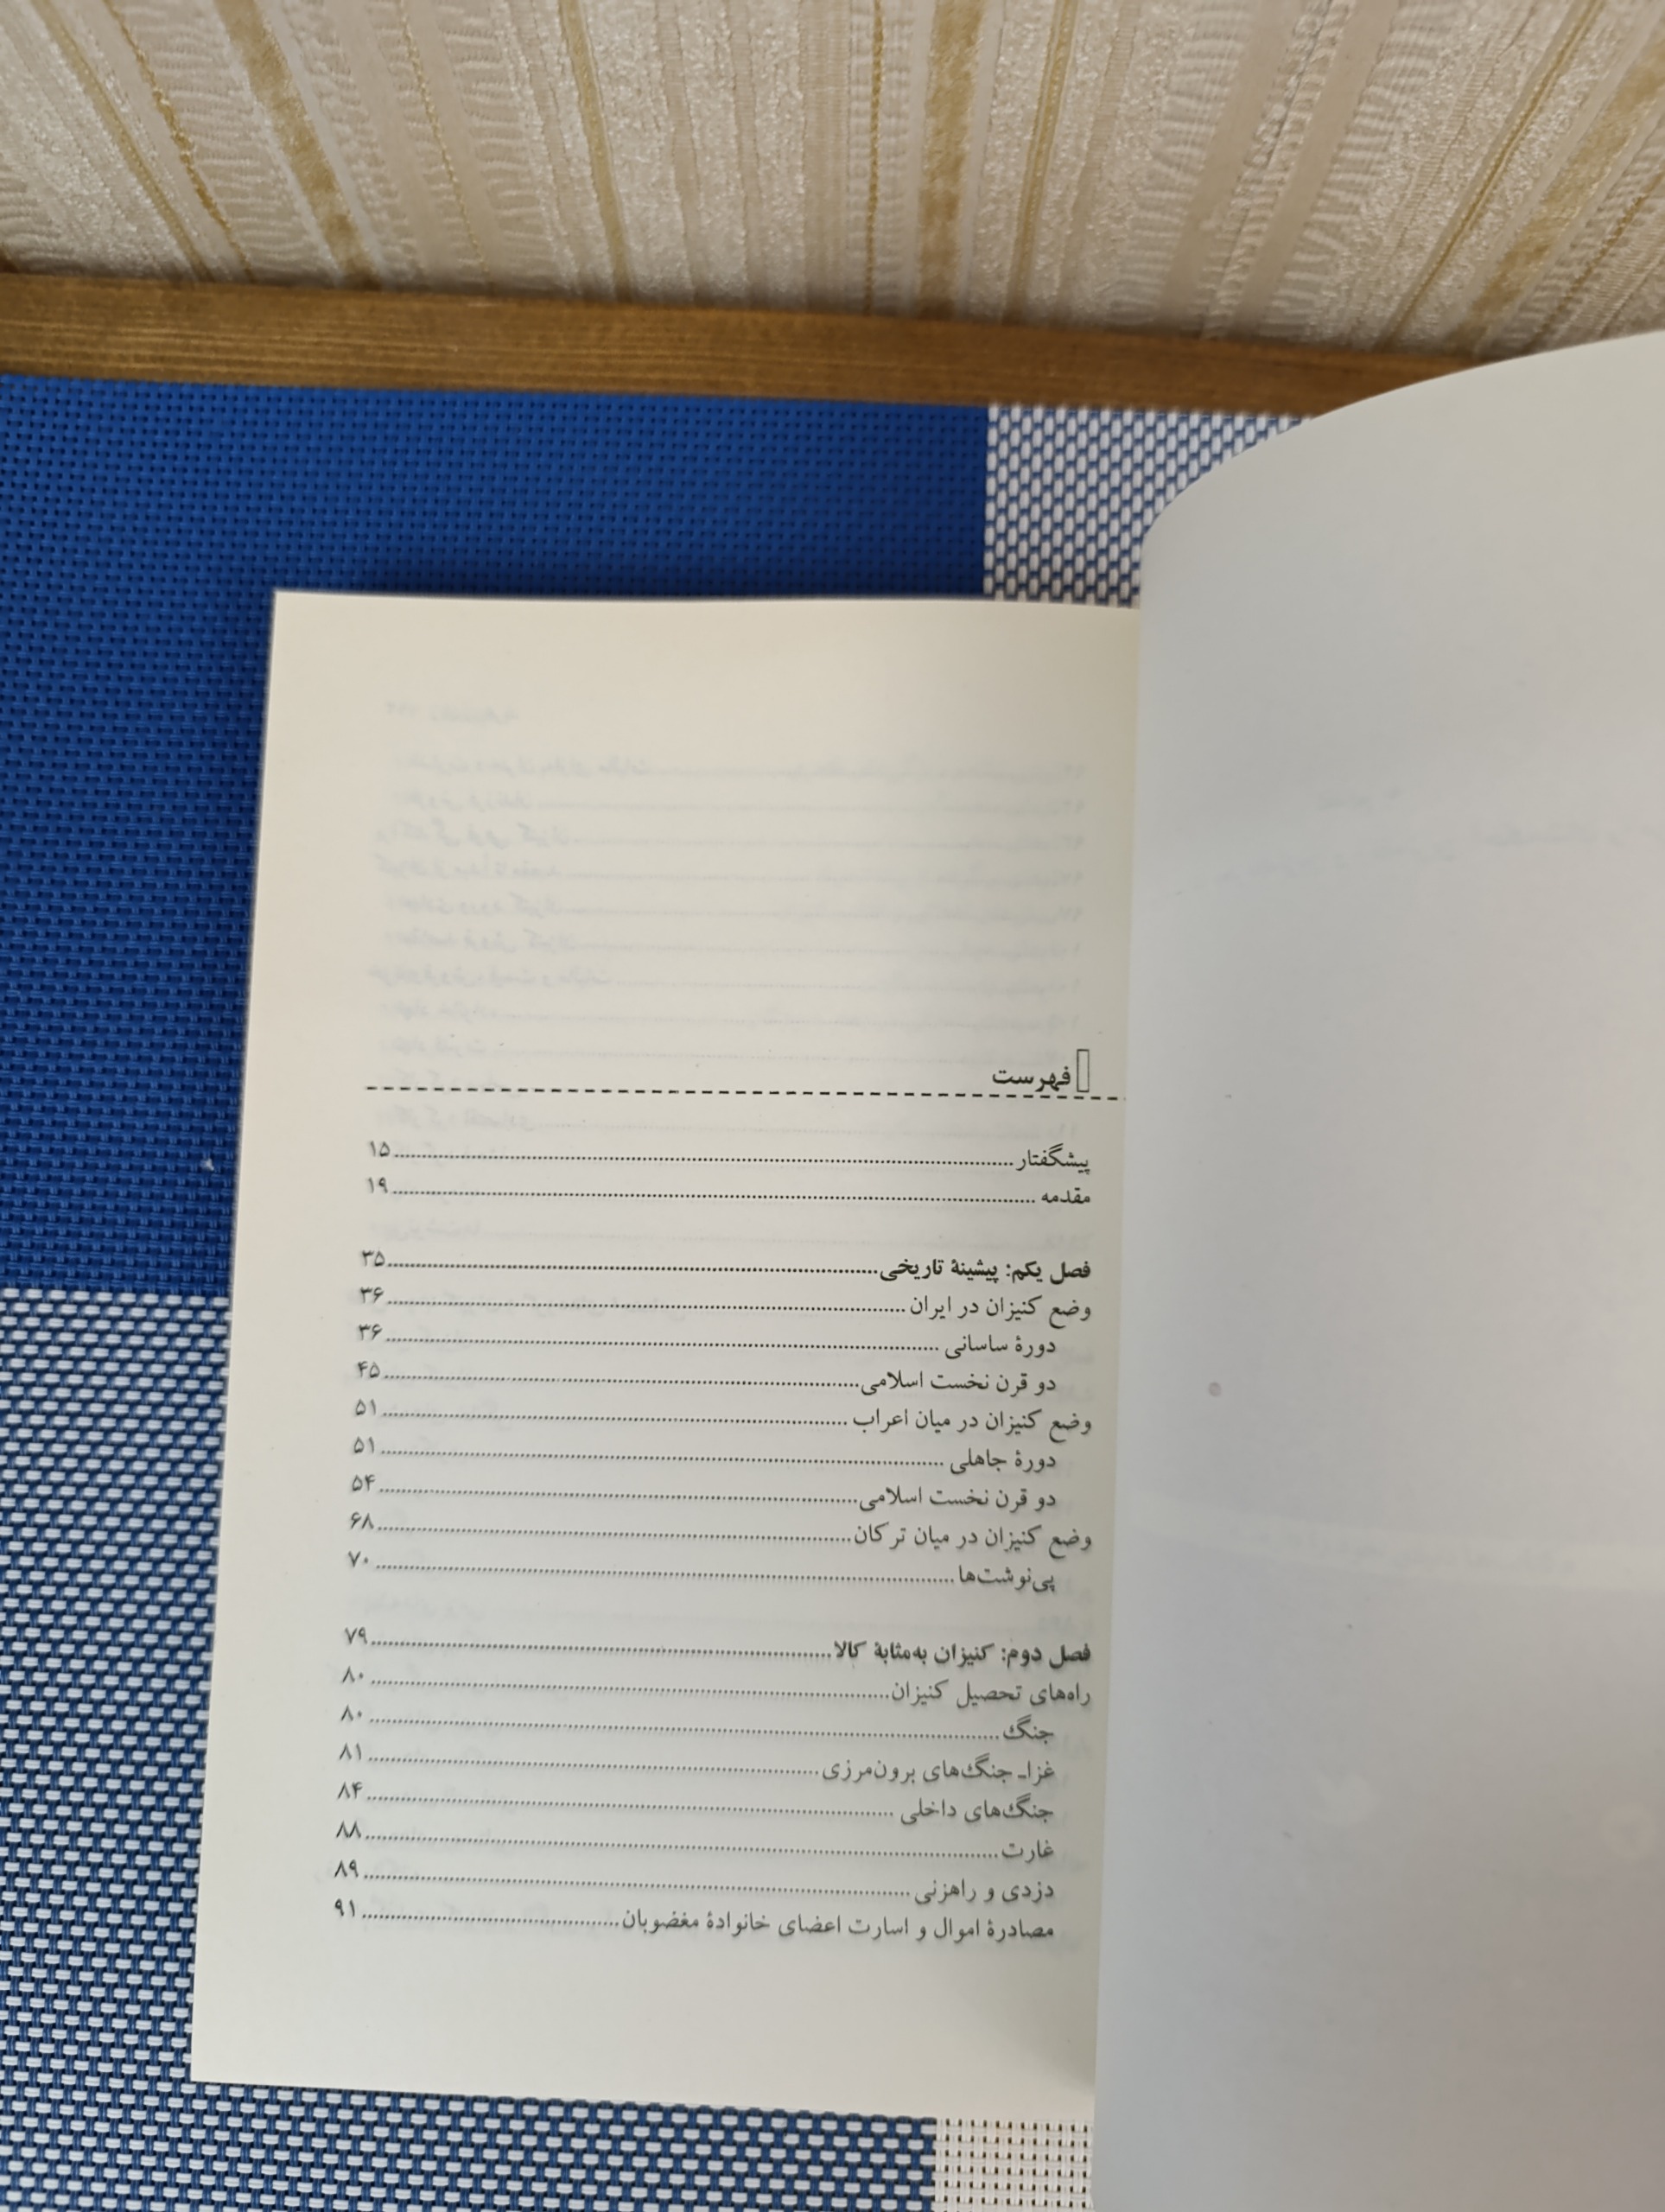 فهرست
پیشگفتار ۱۵
مقدمه ۱۹
فصل یکم: پیشینهٔ تاریخی ۳۵
وضع کنیزان در ایران ۳۶
دورهٔ ساسانی ۳۶
دو قرن نخست اسلامی ۴۵
وضع کنیزان در میان اعراب ۵۱
دورهٔ جاهلی ۵۱
دو قرن نخست اسلامی ۵۴
وضع کنیزان در میان ترکان ۶۸
پی‌نوشت‌ها ۷۰
فصل دوم: کنیزان به‌مثابهٔ کالا ۷۹
راه‌های تحصیل کنیزان ۸۰
جنگ ۸۰
غزاـ جنگ‌های برون‌مرزی ۸۱
جنگ‌های داخلی ۸۴
غارت ۸۸
دزدی و راهزنی ۸۹
مصادرهٔ اموال و اسارت اعضای خانوادهٔ مغضوبان ۹۱